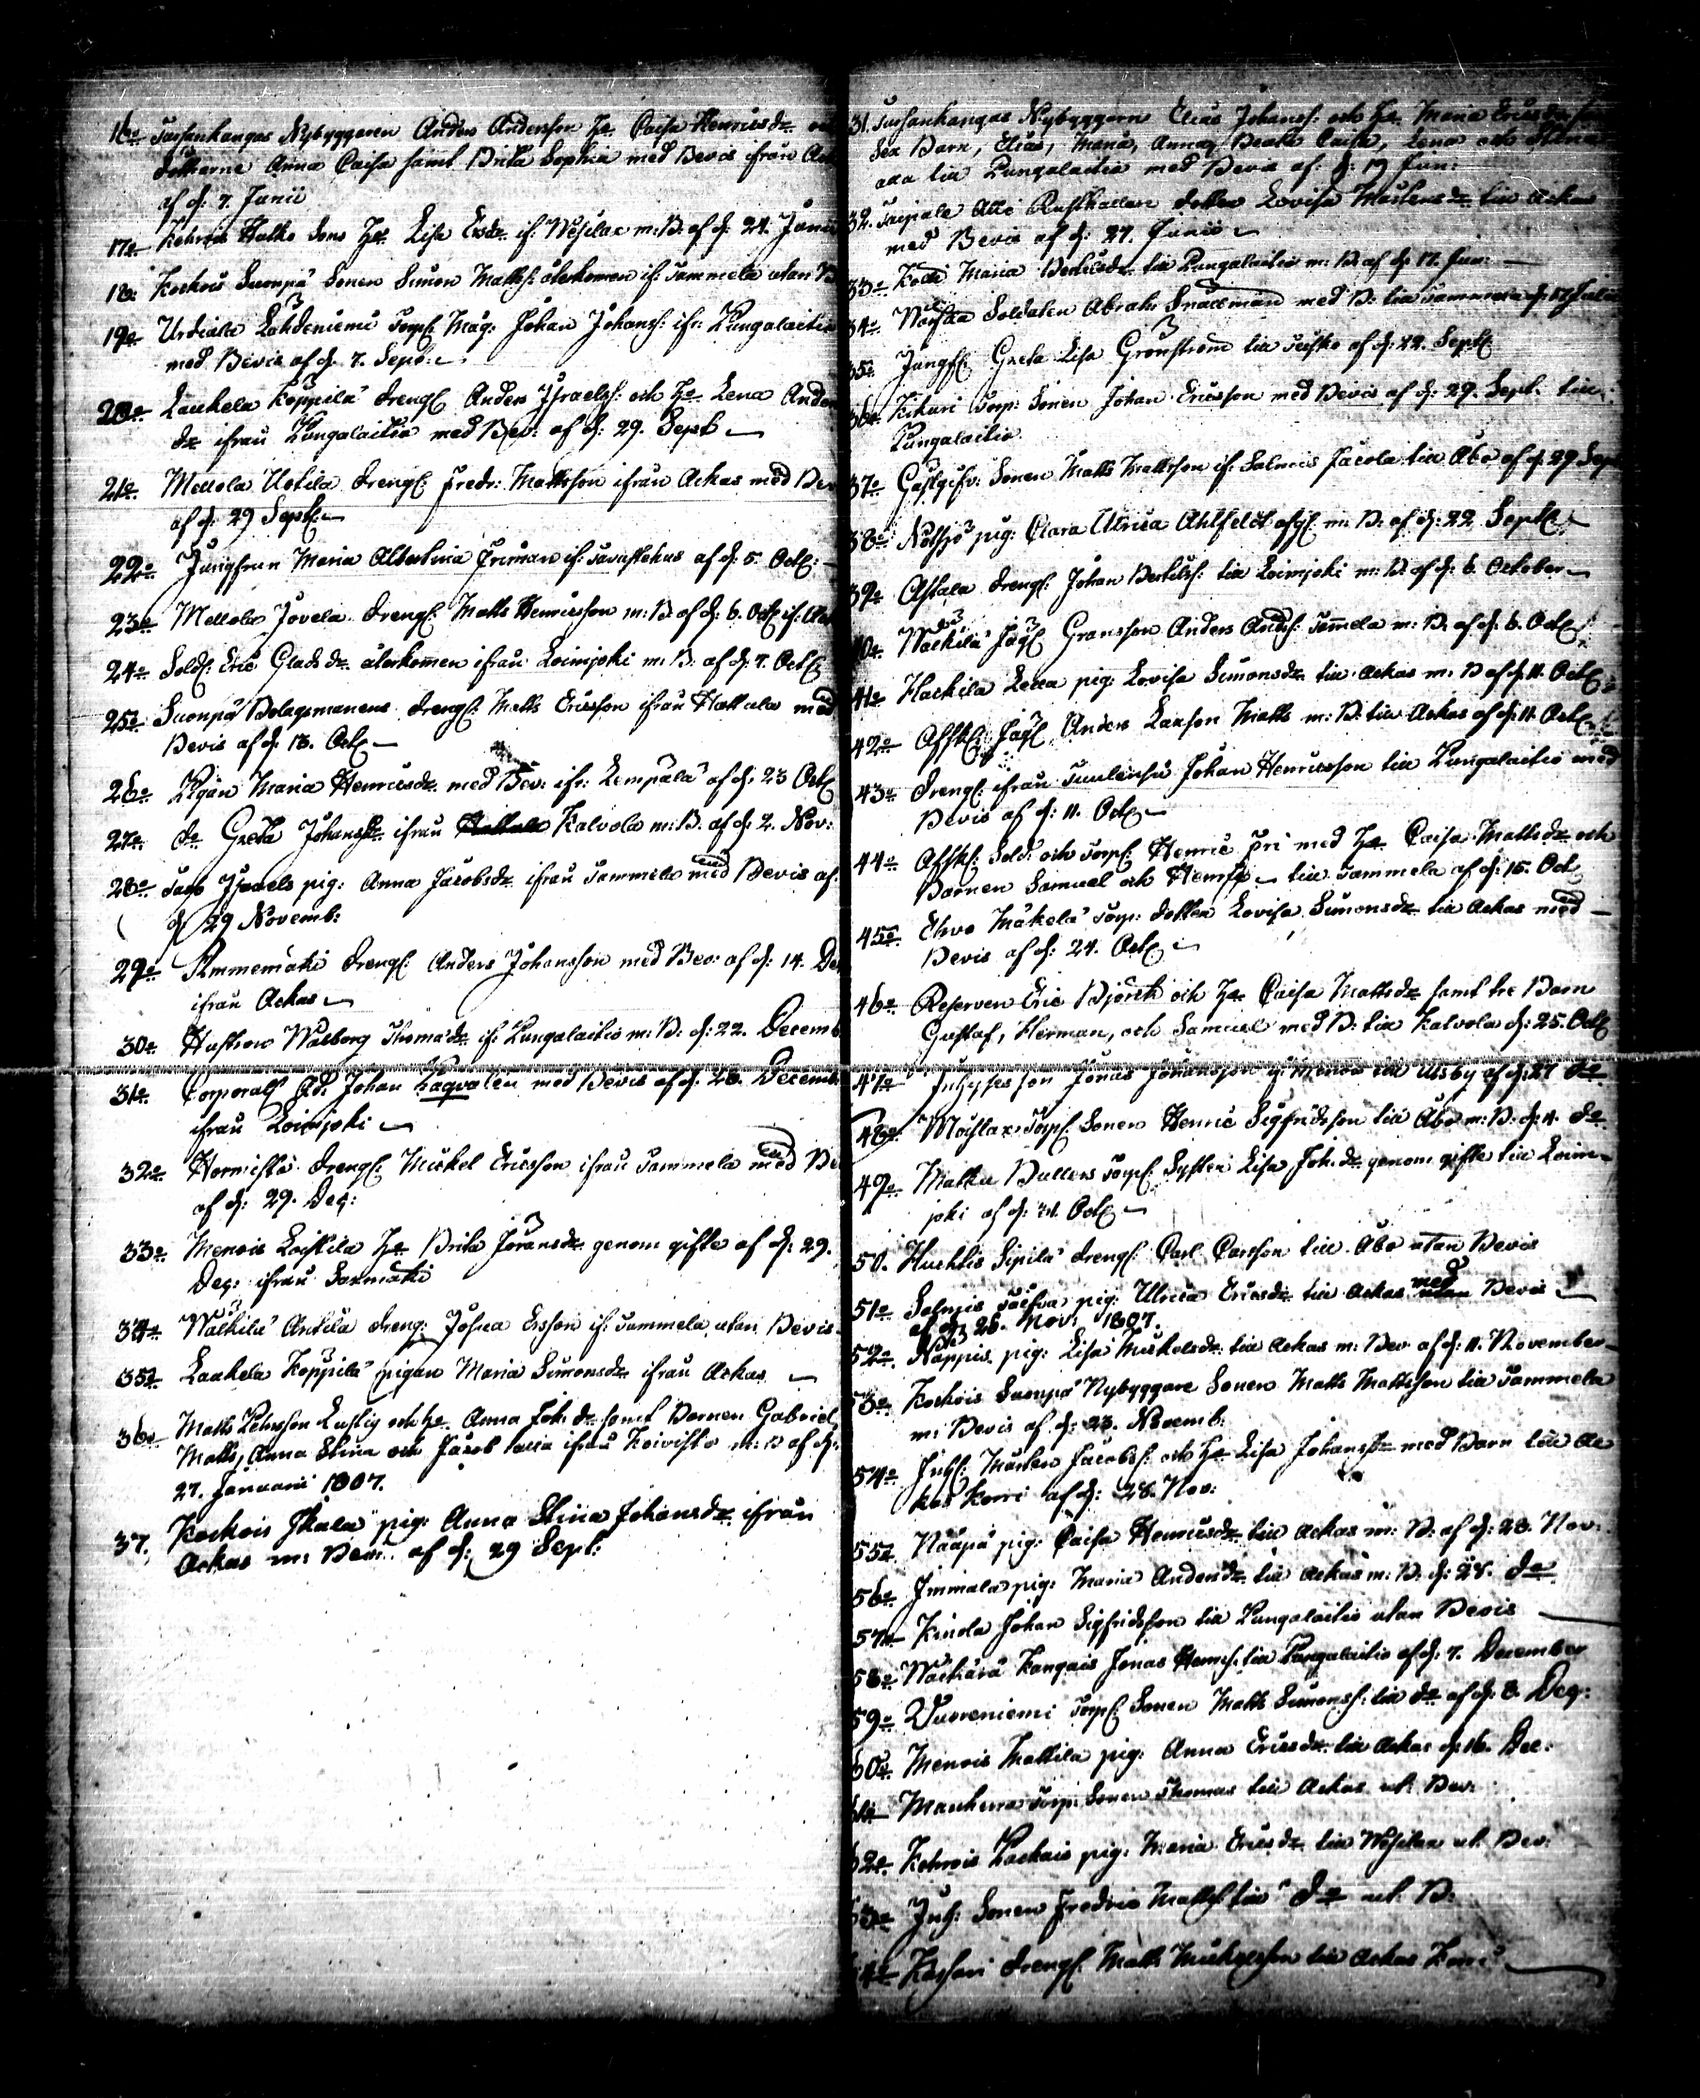 16o Turfankangas Nybyggaren Anders Andersson Ho Caisa Henricsdr
dottrarne Anna Caisa samt Brita Sophia med Bevis ifrån
af d: 7. Junii
17o Kehrois Halko Sons Ho Lisa Ersdr if: Wesilax m: B. af d: 24. Junii
18: Kockois Suonpä Sonen Simon Matts: återkomen if: Tammela utan B
19o Urdiala Lahdeniemi Torp: Måg: Johan Johans: ifr: Pungalaitio
med Bevis af d. 7. Sept:
20o Laukela Koppila dreng: Anders Israels: och Ho Lena Anders
dr ifrån Pungalaitio med Bev: af d: 29. Sept
21o Mellola Uotila dreng: Fredr: Mattsson ifrån Ackas med Bev
af d: 29 Sept:
22o Jungfrun Maria Albertina Friman if: Tavastehus af d: 5. Oct:
23o Mellola Jovela dreng: Matts Henricsson m: B. af d: 6. Oct: if:
24o Sold: Eric Glads dr återkomen ifrån Loimjoki m: B: af d: 7. Oct:
25o Suonpä Bolagsmanens dreng: Matts Ericsson ifrån Hattula med
Bevis af d: 18. Oct:
26o Pigan Maria Henricsdr med Bev: ifr: Lempälä af d: 23 Oct:
27o do Greta Johansdr ifrån Kalvola m: B. af d: 2. Nov:
28o Israels pig: Anna Jacobsdr ifrån Tammela med Bevis af:
d 29 Novemb:
29o Ammemäki dreng: Anders Johansson med Bev: af d: 14. De
ifrån Ackas
30o Hustrun Walborg Thomædr if: Pungalaitio m: B: d: 22. Decemb
31o Corporals Ed: Johan Hagvalen med Bevis af d: 28. Decemb:
ifrån Loimjoki
32o Hornisto dreng: Michel Ericsson ifrån Tammela med Be
af d: 29. Dec:
33o Menois Lochtila Ho Brita Jöransdr genom gifte af d: 29.
Dec: ifrån Sarmäki
34o Walkila Antila dreng: Josua Ersson if: Tammela utan Bevis
35o Laukela Koppila pigan Maria Simonsdr ifrån Ackas
36o Matts Petersson Lustig och Ho Anna Joh:dr samt Barnen Gabriel,
Matts, Anna Stina och Jacob alla ifrån Koivisto m: B af d:
27. Januari 1807.
37. Kockois Skala pig: Anna Stina Johansdr ifrån
Ackas m: Bev: af d: 29 Sept:
31. Turfankangas Nybyggaren Elias Johans: och Ho Maria Ericsdr
Sex Barn, Elias, Maria, Anna, Beata Caisa, Lena och Stina
alla till Pungalaitio med Bevis af: d: 19 Jun:
32. Taipale Alli Rusthållare dotter Lovisa Mårtensdr till Ackas
med Bevis af d: 27. Junii
33o Maria Bertilsdr till Pungalaitio m: B. af d: 17. Jun:
34. Soldaten Abrah: Snällman med B: till Tammela d: 17 Julii
35. Jungf: Greta Lisa Grönström till Teisko af d: 22. Sept:
36o Kikuri Torp: Sonen Johan Ericsson med Bevis af d: 29. Sept. till
Pungalaitio
37o Gästgifv: Sonen Matts Mattsson if: Salmis Jacola till Åbo af d: 29 Sep
38o Notsjö pig: Clara Ulrica Ahlfeldt afg: m: B. af d: 22 Sept:
39o Astala dreng: Johan Bertils: till Loimjoki m: B. af d: 6. October
40o Walkila Jäg: Gransson Anders Anders: Tammela m: B. af d: 6. Oct:
41o Hackila Lecca pig: Lovisa Simonsdr till Ackas m: B af d: 11. Oct:
42o Afsk: Jäg: Anders Laxson Matts m: B. till Ackas af d: 11. Oct:
43o dreng: ifrån Johan Henricsson till Pungalaitio med
Bevis af d: 11. Oct:
44o Afsk: Sold: och Torp: Henric Fri med Ho Caisa Mattsdr och
Barnen Samuel och till Tammela af d: 15. Oct
45o Ehvo Mäkelä Torp: dotter Lovisa Simonsdr till Ackas med
Bevis af d: 24. Oct:
46o Reserven Eric Björck och Ho Caisa Mattsdr samt tre Barn
Gustaf, Herman, och Samuel med B: till Kalvola d: 25. Oct:
47o Inhyses son Jonas Johansson if: Menois till Ulsby af d: 27 do
48o Torp: Sonen Henric Sigfridsson till Åbo m: B: d: 4. do
49o Matku Bullers Torp: Syster Lisa Joh:dr genom gifte till Loim-
joki af d: 31. Oct:
50. Huchtis Sipilä dreng: Carl Carlson till Åbo utan Bevis
51o Salmis pig: Ulrica Ericsdr till Ackas med Bevis
af d: 26. Nov: 1807.
52o Näppis pig: Lisa Michelsdr till Ackas m: Bev af d: 11. November
53o Kockois Suonpä Nybyggare Sonen Matts Mattsson till Tammela
m: Bevis af d: 23. Novemb:
54o Inh: Mårten Jacobs: och Ho Lisa Johansdr med Barn till Ac
kas Korri af d: 28. Nov:
55o Nääpä pig: Caisa Henricsdr till Ackas m: B: af d: 28. Nov:
56o Immala pig: Maria Andersdr till Ackas m: B. d: 28. do
57o Kinola Johan Sigfridsson till Pungalaitio utan Bevis
58o Kangais Jonas Henrics: till Pungalaitio af d: 7. December
59o Vuoreniemi Torp: Sonen Matts Simons: till do af d: 8. Dec:
60o Menois Mattila pig: Anna Ericsdr till Ackas d: 16. Dec:
61o Torp: Sonen Thomas till Ackas ut: Bev:
62o Kehrois Packais pig: Maria Ericsdr till Wesilax ut: Bev:
63o Inh: Sonen Fredric Matts: till do ut: B.
64o Kassari dreng: Matts Michelsson till Ackas Korri